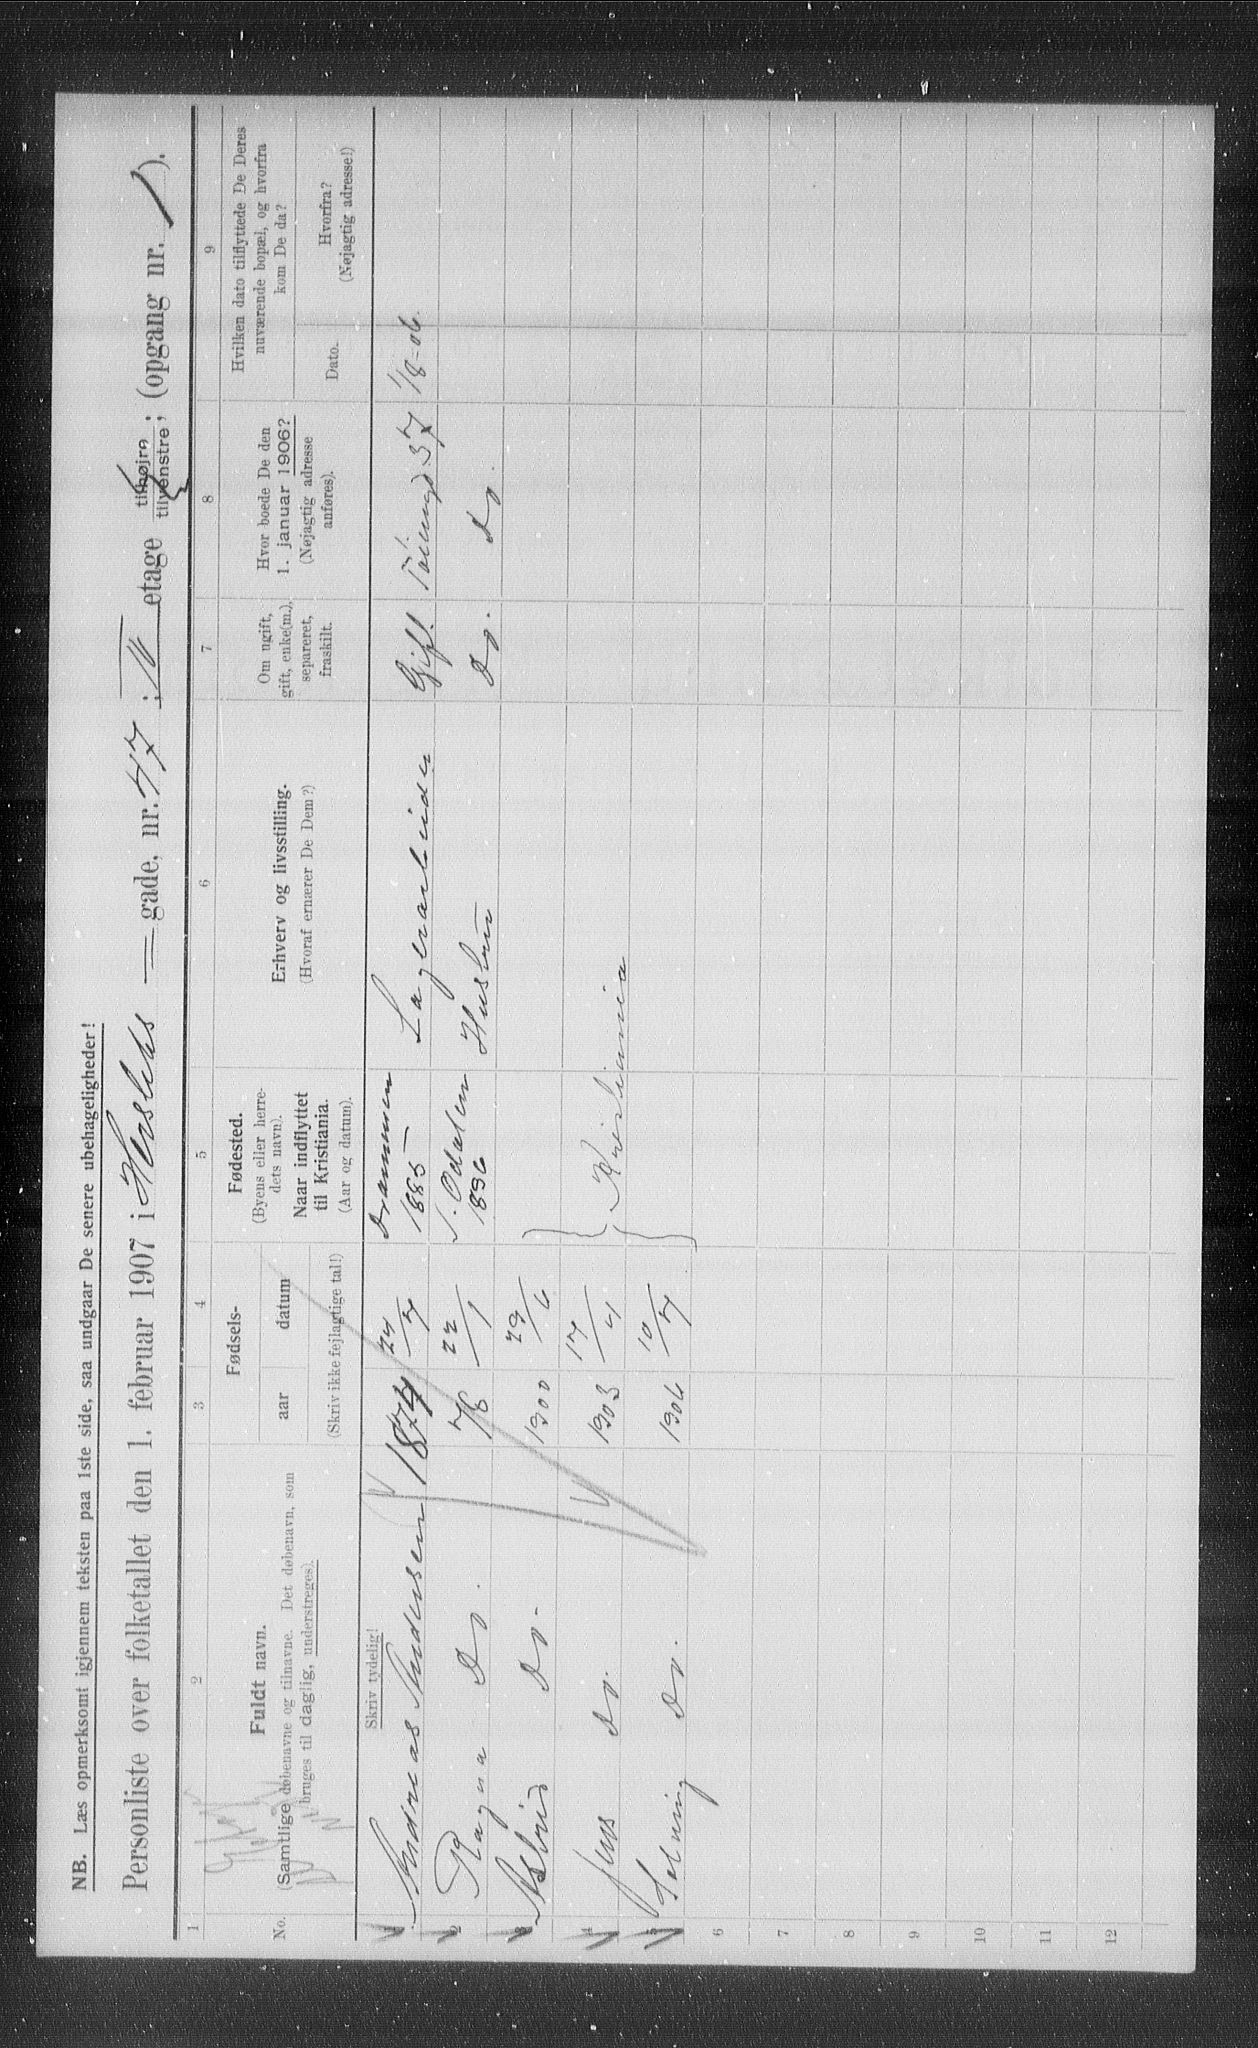 NB. Læs opmerksomt igjennem teksten paa 1ste side, saa undgaar De senere ubehageligheder!
Personliste over folketallet den 1. februar 1907 i Herslebs gade, nr. 47; IV etage tilhøjre tilvenstre; (opgang nr. 1).
1 2 3 4 5 6 7 8 9
No.
Fuldt navn.
(Samtlige døbenavne og tilnavne. Det døbenavn, som
bruges til daglig, understreges).
Fødsels-
aar datum
(Skriv ikke fejlagtige tal!)
Fødested.
(Byens eller herre-
dets navn).
Naar indflyttet
til Kristiania.
(Aar og datum).
Erhverv og livsstilling.
(Hvoraf ernærer De Dem?)
Om ugift,
gift, enke(m.),
separeret,
fraskilt.
Hvor boede De den
1. januar 1906?
(Nøjagtig adresse
anføres).
Hvilken dato tilflyttede De Deres
nuværende bopæl, og hvorfra
kom De da?
Dato.
Hvorfra?
(Nøjagtig adresse!)
Skriv tydelig!
1 Andreas Andersen 1874 24/7 Drammen 1885 Lagerarbeider Gift 37 1/8-06.
2 Ragna Do. 78 22/1 S. Odalen 1896 Hustru Do. Do.
3 Astrid Do. 1900 29/6
4 Jens Do. 1903 17/4 Kristiania
5 Solveig Do. 1906 10/7
6
7
8
9
10
11
12